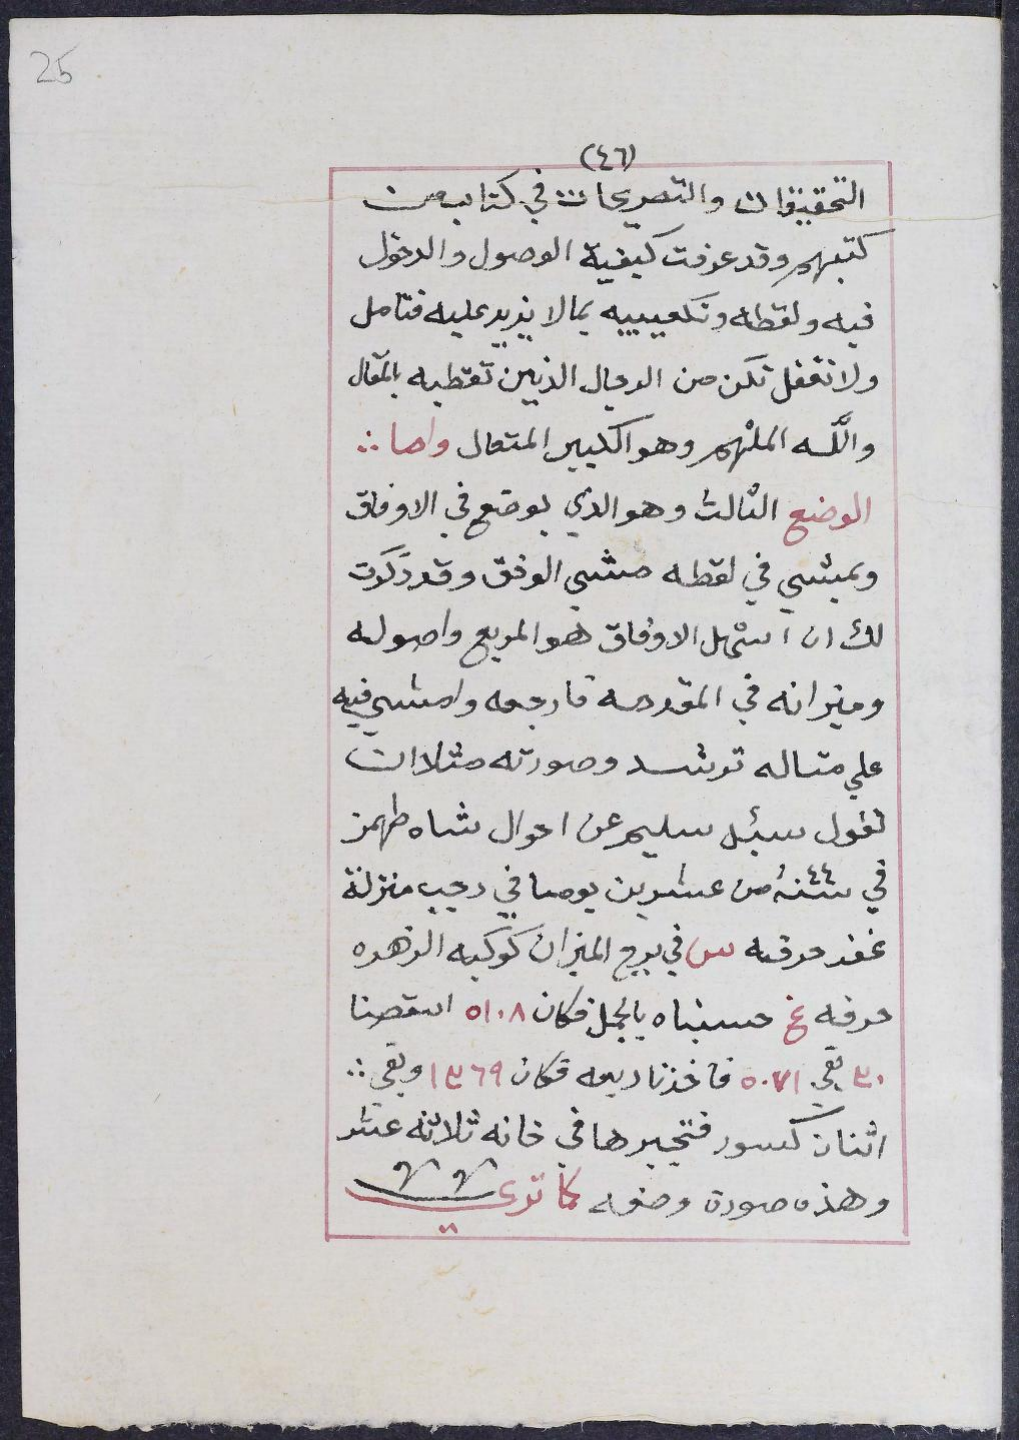 25
(٤٦)
التحقيقات والتصريحات في كتاب من
كتبهم وقد عرفت كيفية الوصول والدخول
فيه ولقطه وتكعيبه بما لا يزيد عليه فتامل
ولا تغفل تكن من الرجال الذين تقطبه بالمقال
واللّه الملهم وهو الكبير المتعال واما ∴
الوضع الثالث وهو الذي يوضع في الاوفاق
ويمشي في لقطه مشي الوفق وقد ذكرت
لك ان اسهل الاوفاق هو المربع واصوله
وميزانه في المقدمه فارجعه وامشي فيه
علي مثاله ترشد وصورته مثلا ان
نقول سئل سليم عن احوال شاه طهمز
في سنة ٤٤ من عشرين يوما في رجب منزلة
غفر حرفه س في برج الميزان كوكبه الزهره
حرفه غ حسبناه بالجمل فكان ٥١٠٨ اسقطنا
٣٠ بقي ٥٠٧١ فاخذنا ربعه فكان ١٣٦٩ وبقي ∴
اثنان كسور فتجبرها في خانه ثلاثه عشر
وهذه صورة وضعه كما تري